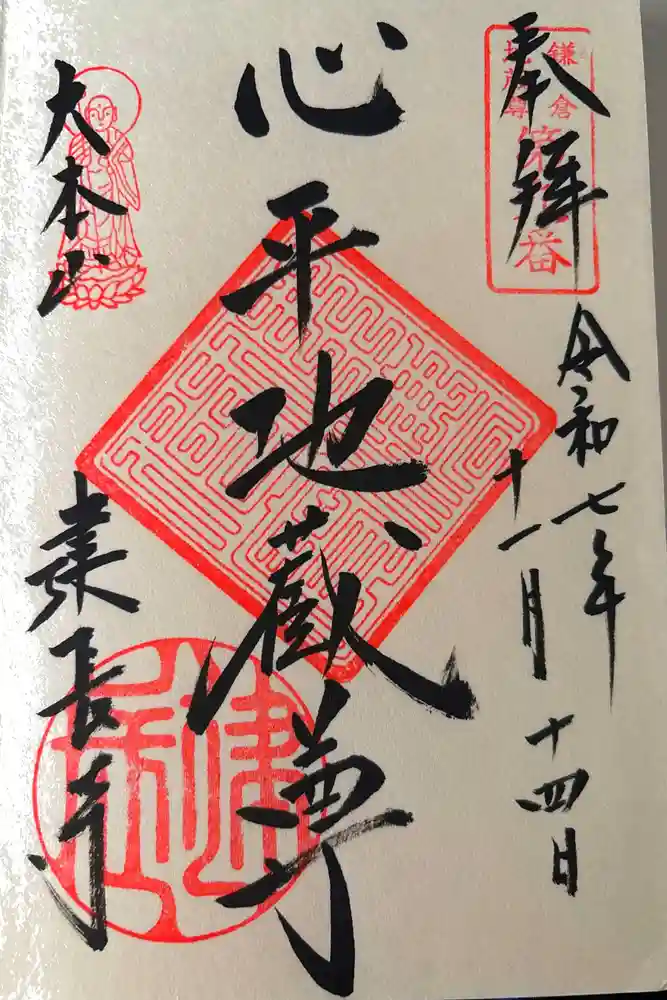 奉拝
鎌倉
地蔵尊
第 番
令和七年
十一月十四日
心平地蔵尊
大本山
建長寺